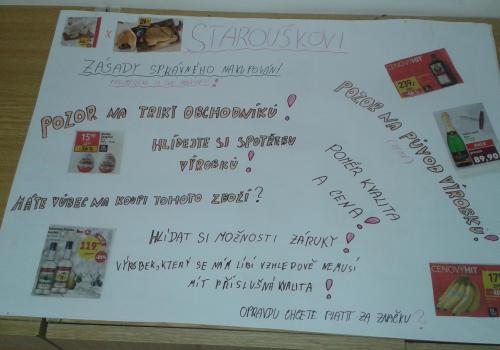 STAROUŠKOVI
ZÁSADY SPRÁVNÉHO NAKUPOVÁNÍ
POZOR NA TRIKY OBCHODNÍKŮ!
HLÍDEJTE SI SPOTŘEBU
VÝROBKŮ!
MÁTE VŮBEC NA KOUPI TOHOTO ZBOŽÍ?
HLÍDAT SI MOŽNOSTI ZÁRUKY!
VÝROBEK, KTERÝ SE NÁM LÍBÍ VZHLEDOVĚ NEMUSÍ
MÍT PŘÍSLUŠNÁ KVALITA!
OPRAVDU CHCETE PLATIT ZA ZNAČKU?
POMĚR KVALITA
A CENA!
POZOR NA PŮVOD VÝROBKU!
CENOVÝ HIT
239,-
89.90
15.90
119.-
CENOVÝ HIT